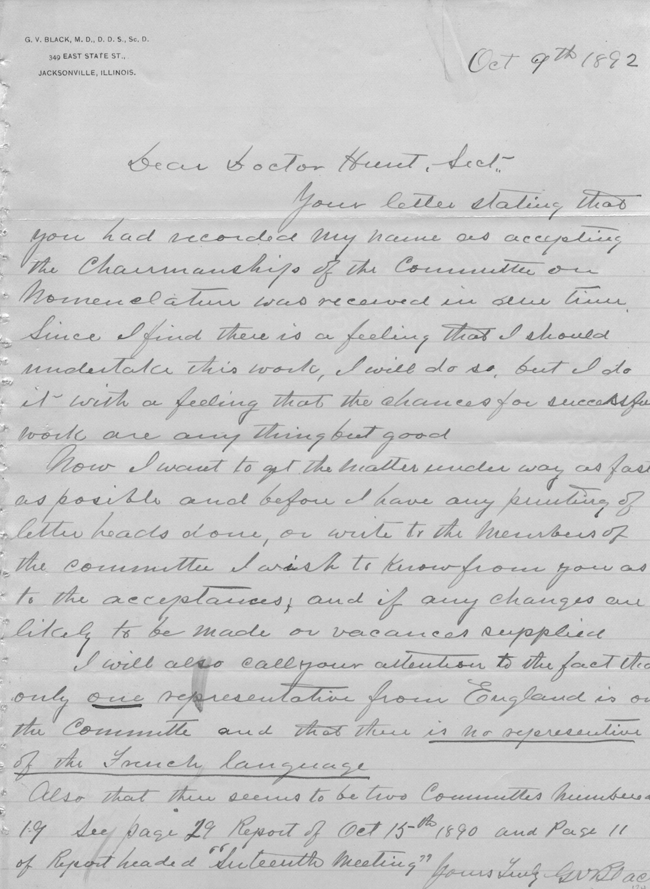 G. V. BLACK, M. D., D. D. S., Sc. D.
349 EAST STATE ST.,
JACKSONVILLE, ILLINOIS.
Oct 9th 1892
Dear Doctor Hunt, Sect.
Your letter stating that
you had recorded my name as accepting
the Chairmanship of the Committee on
Nomenclature was received in due time.
Since I find there is a feeling that I should
undertake this work, I will do so, but I do
it with a feeling that the chances for successful
work are any thing but good
Now I want to get the matter under way as fast
as posible and before I have any printing of
letter heads done, or write to the members of
the committee I wish to know from you as
to the acceptances; and if any changes are
likely to be made or vacances supplied
I will also call your attention to the fact tha
only one representative from England is on
the Committe and that there is no representive
of the French language
Also that there seems to be two Committes numbered
19 See page 29 Report of Oct 15th 1890 and Page 11
of Report headed "Sixteenth Meeting" Yours Truly GVBlac